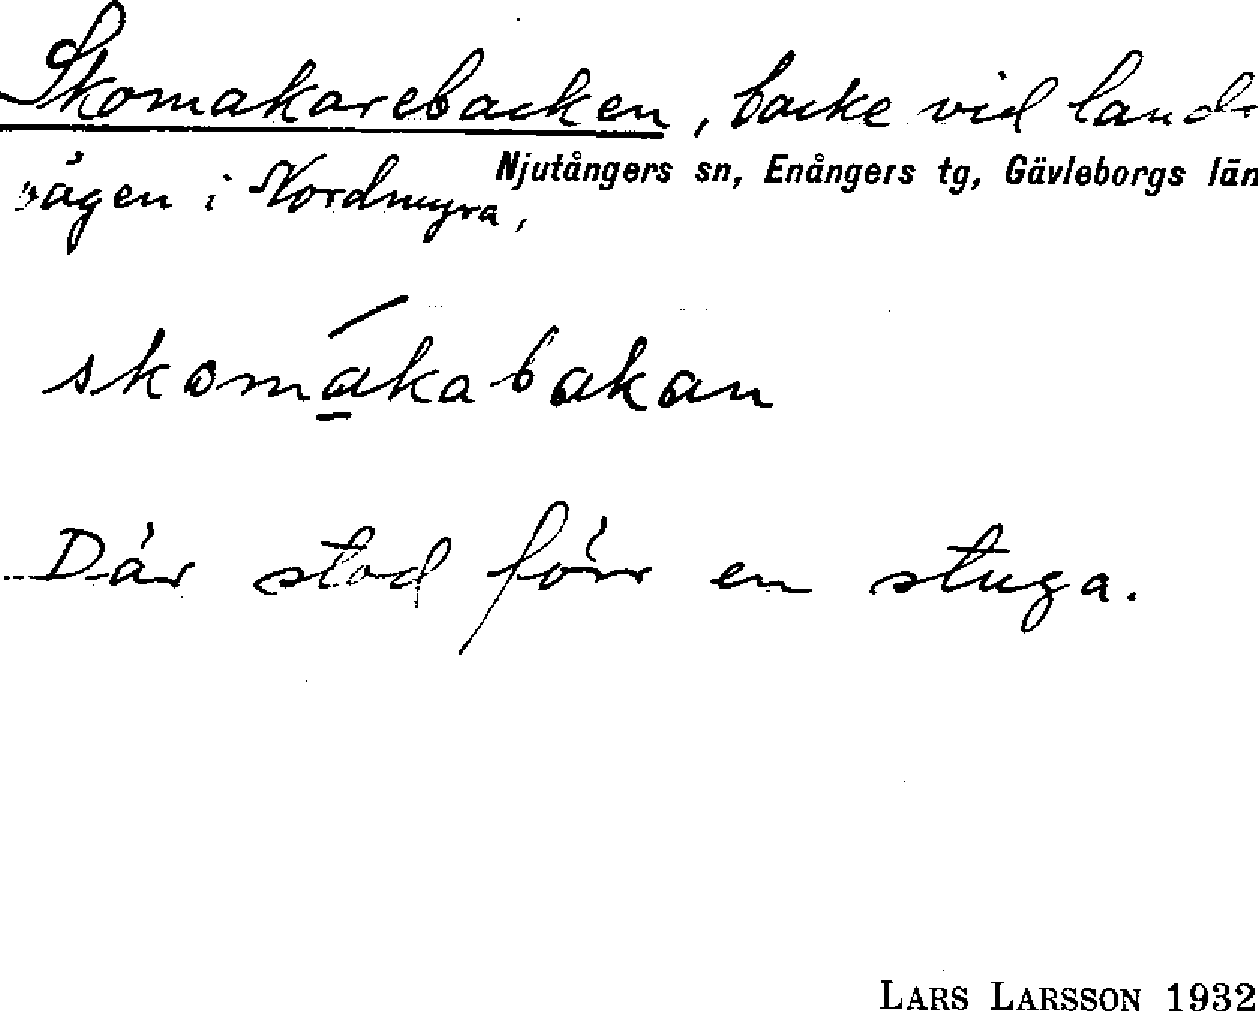 Skomakarebacken, backe vid lands-
vägen i Nordmyra,
Njutångers sn, Enångers tg, Gävleborgs län
skomákabakan
Där stod förr en stuga.
LARS LARSSON 1932